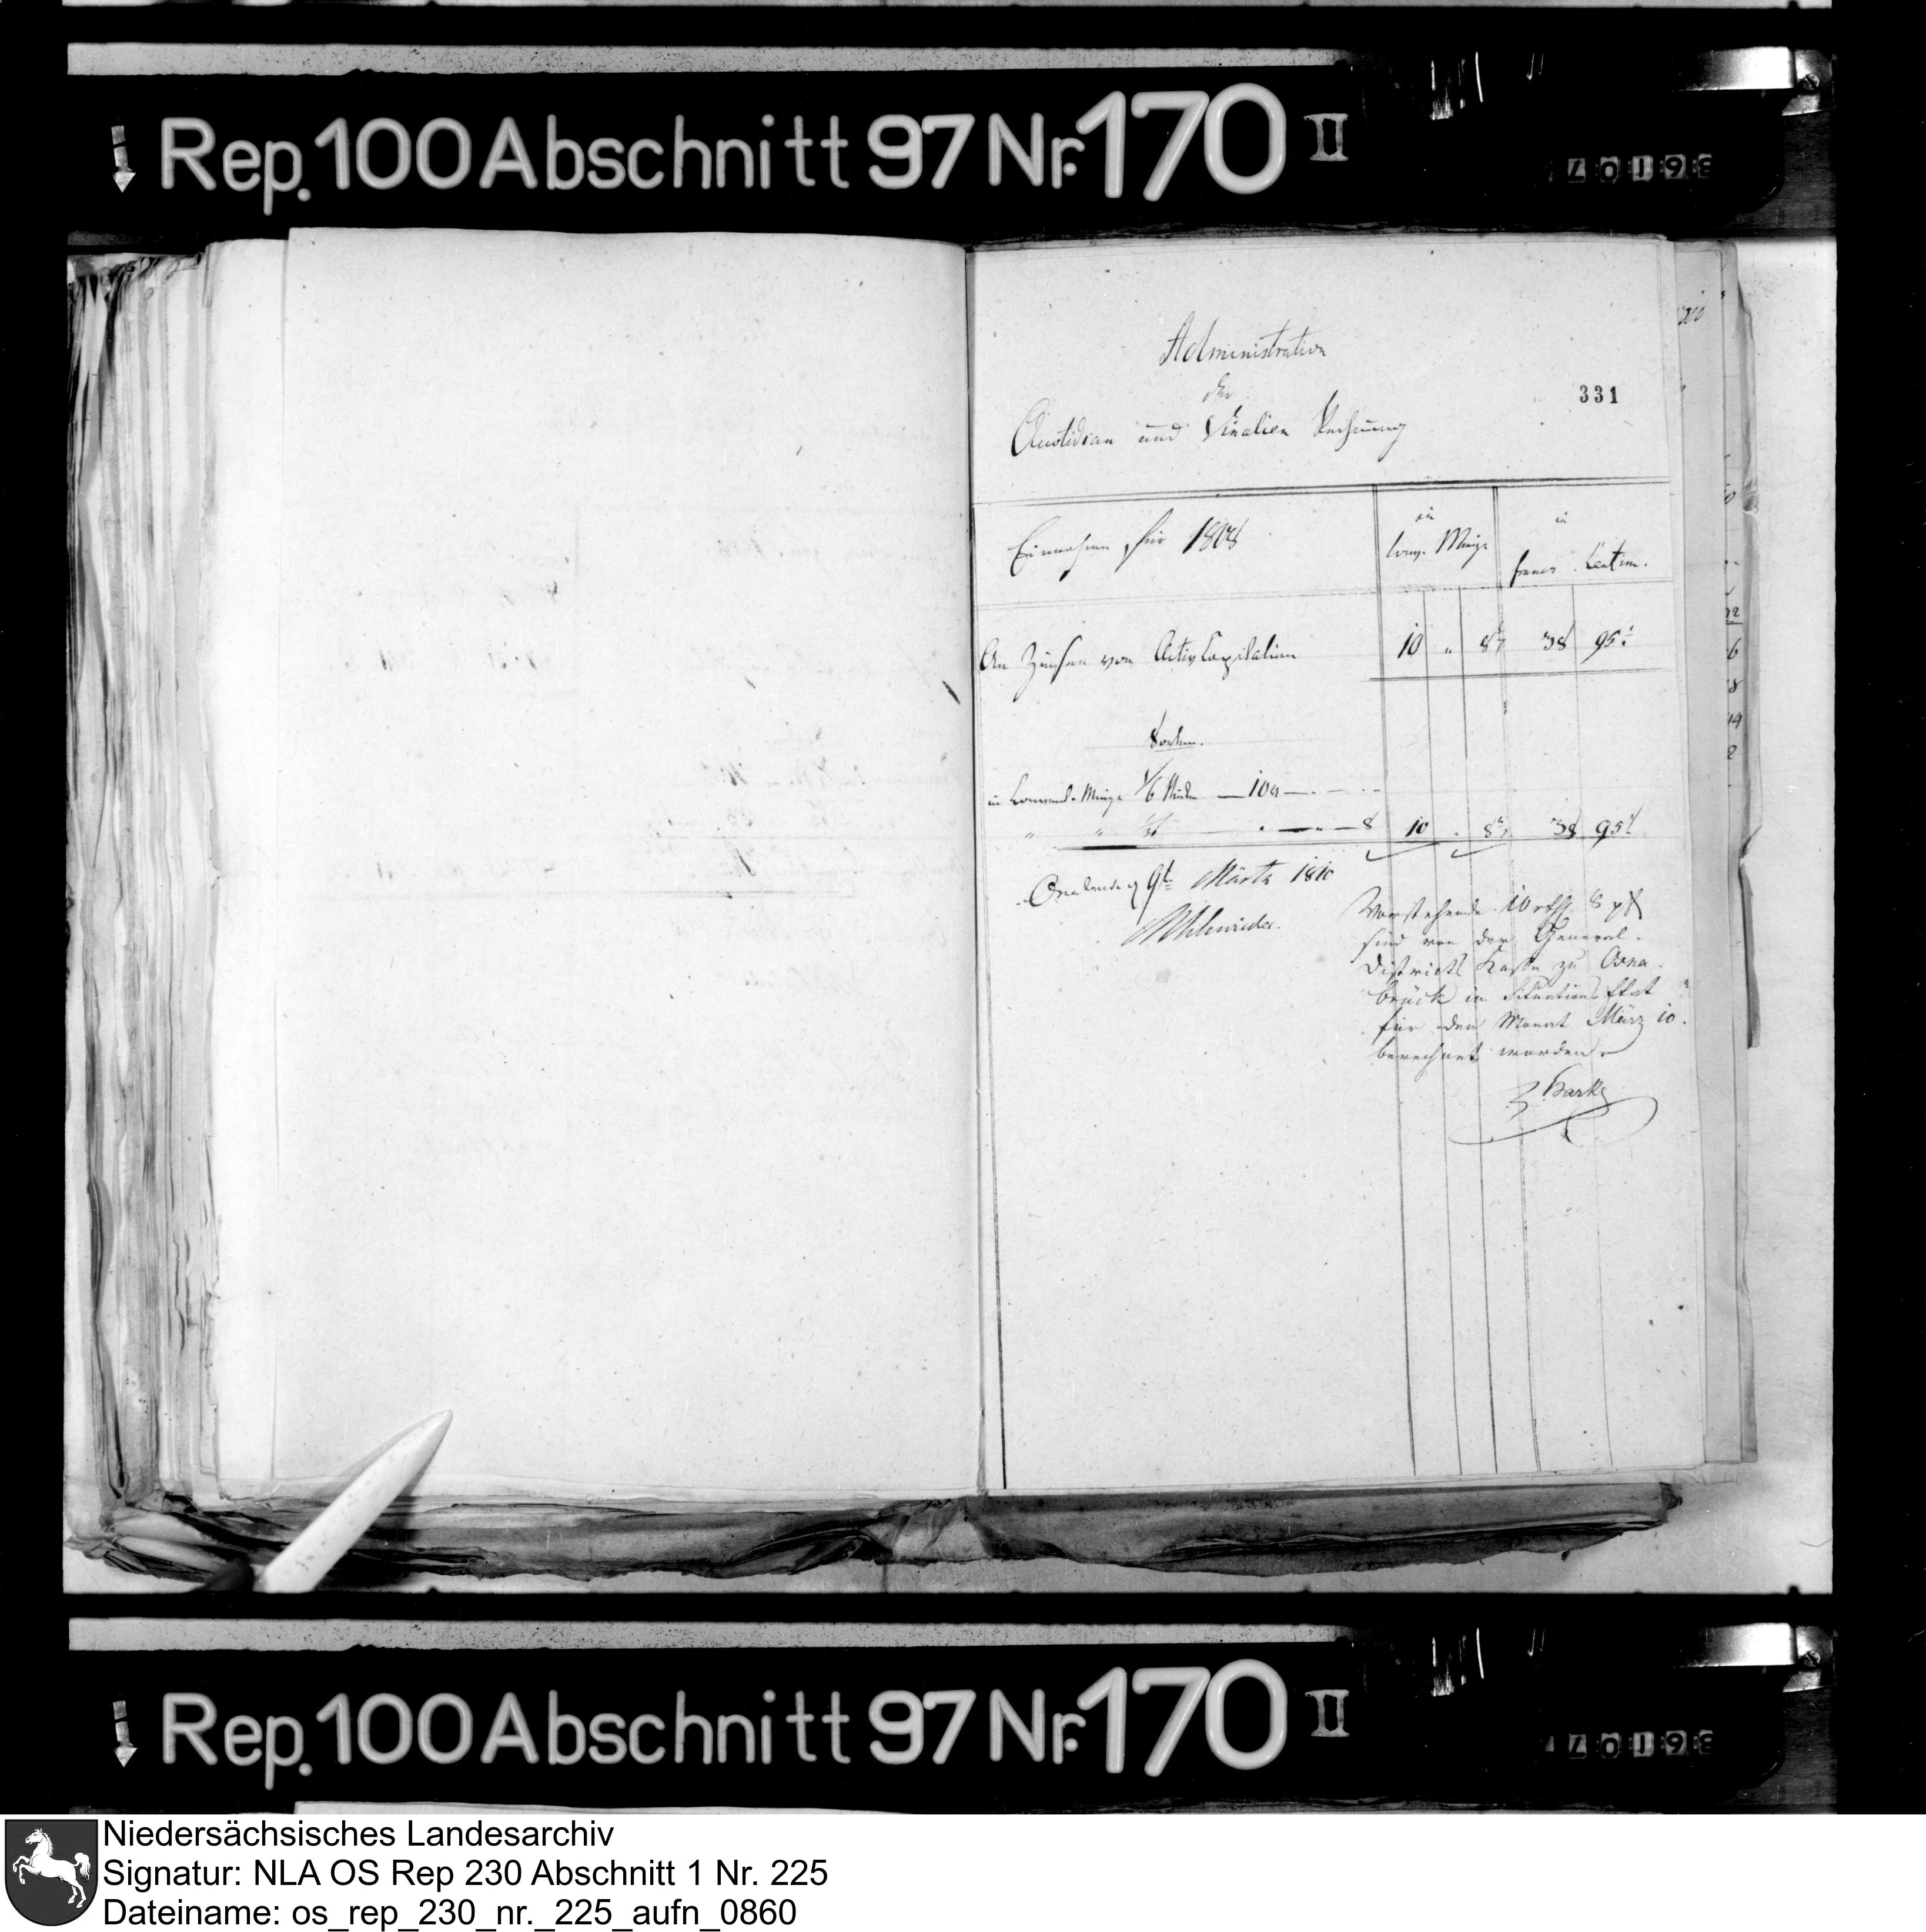 Rep. 100 Abschnitt 97 Nr. 170 II
36107
Administration
der
Quotidian und Vinalien Rechnung
331
Einnahme für 1808
in
Conv. Münze
in
francs Centim.
An Zinsen von Activ Capitalien 10 " 8 38 95
Sorten.
in Convent. Münze 1/6 Stücke — 10 —
" " — 8 10 . 8 38 95
Osnabrück 9t Märtz 1810
Vorstehende 10 rthl 8 pf
sind von der General-
Districts Kasse zu Osna-
brück in Situations Etat
für den Monat März 10.
berechnet worden.
Barke
Rep. 100 Abschnitt 97 Nr. 170 II
36107
Niedersächsisches Landesarchiv
Signatur: NLA OS Rep 230 Abschnitt 1 Nr. 225
Dateiname: os_rep_230_nr._225_aufn_0860